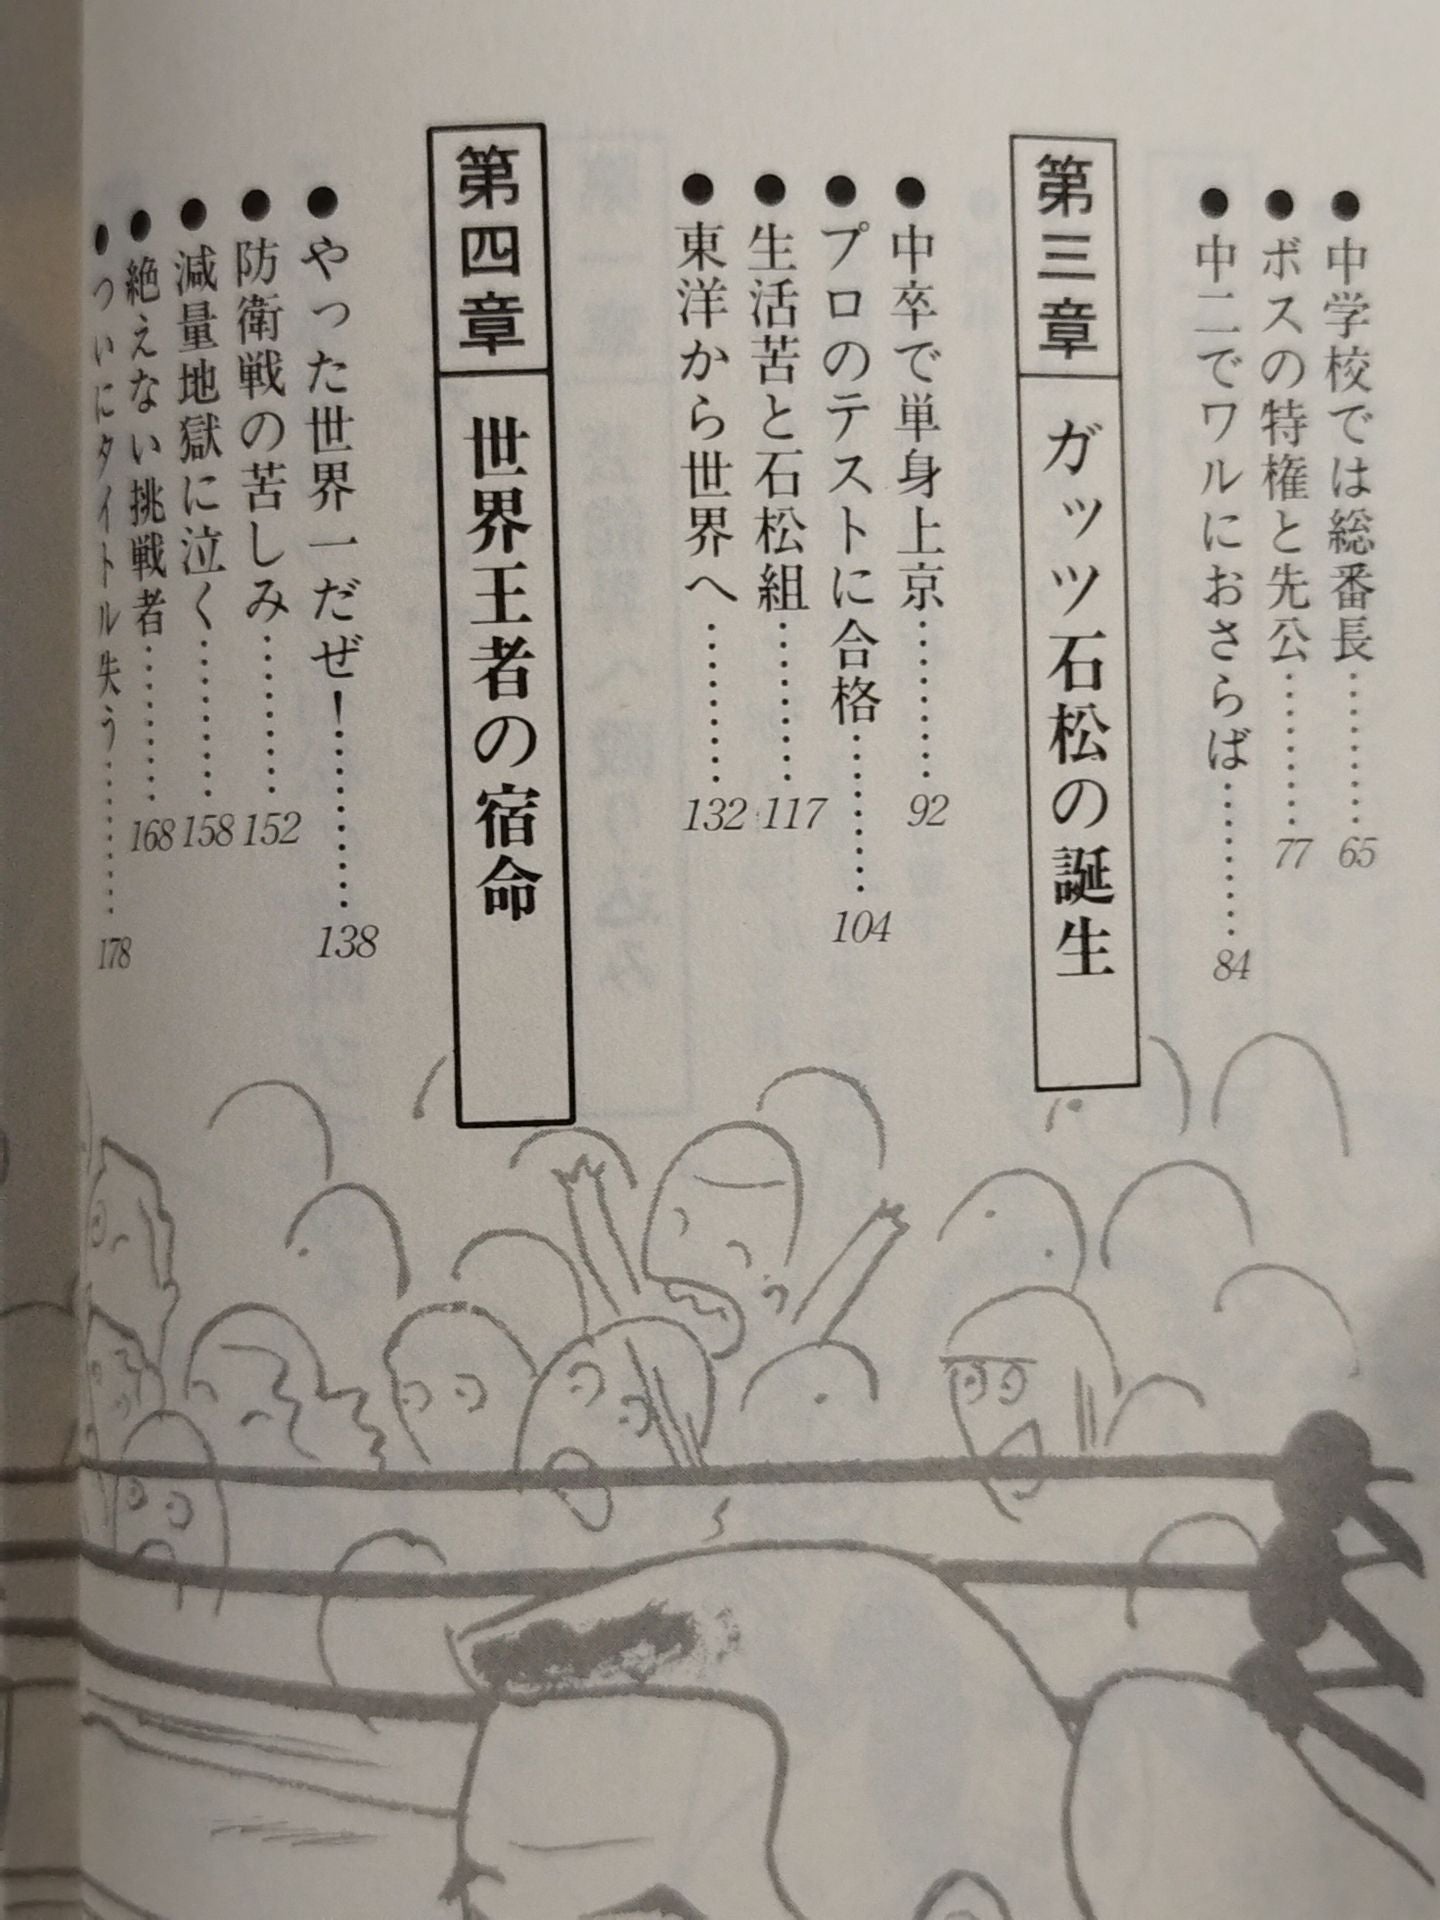 ●中学校では総番長………65
●ボスの特権と先公………77
●中二でワルにおさらば………84
第三章 ガッツ石松の誕生
●中卒で単身上京………92
●プロのテストに合格………104
●生活苦と石松組………117
●東洋から世界へ………132
第四章 世界王者の宿命
●やった世界一だぜ！………138
●防衛戦の苦しみ………152
●減量地獄に泣く………158
●絶えない挑戦者………168
●ついにタイトル失う………178